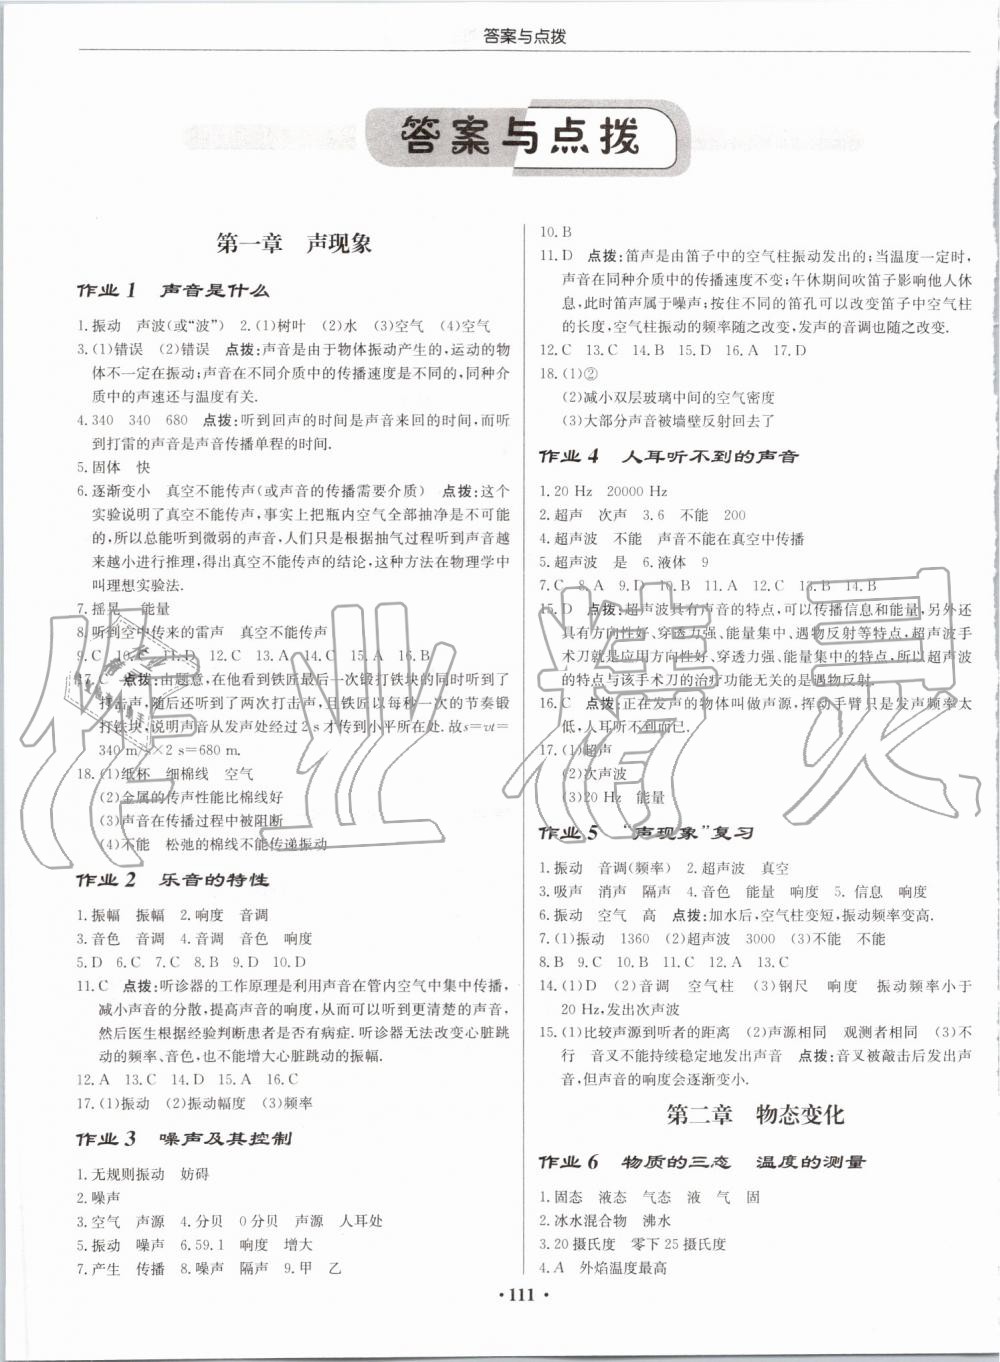 答案与点拨
答案与点拨
第一章 声现象
作业1 声音是什么
1.振动 声波(或“波”) 2.(1)树叶 (2)水 (3)空气 (4)空气
3.(1)错误 (2)错误 点拨:声音是由于物体振动产生的,运动的物
体不一定在振动;声音在不同介质中的传播速度是不同的,同种介
质中的声速还与温度有关.
4.340 340 680 点拨:听到回声的时间是声音来回的时间,而听
到打雷的声音是声音传播单程的时间.
5.固体 快
6.逐渐变小 真空不能传声(或声音的传播需要介质) 点拨:这个
实验说明了真空不能传声,事实上把瓶内空气全部抽净是不可能
的,所以总能听到微弱的声音,人们只是根据抽气过程听到声音越
来越小进行推理,得出真空不能传声的结论,这种方法在物理学中
叫理想实验法.
7.摇晃 能量
8.听到空中传来的雷声 真空不能传声
9.C 10. 11.D 12.C 13.C 14.A 15.A 16.B
17.C 点拨:由题意,在他看到铁匠最后一次锻打铁块的同时听到了
打击声,随后还听到了两次打击声,且铁匠以每秒一次的节奏锻
打铁块,说明声音从发声处经过2 s才传到小平所在处.故s=vt=
340 m/s×2 s=680 m.
18.(1)纸杯 细棉线 空气
(2)金属的传声性能比棉线好
(3)声音在传播过程中被阻断
(4)不能 松弛的棉线不能传递振动
作业2 乐音的特性
1.振幅 振幅 2.响度 音调
3.音色 音调 4.音调 音色 响度
5.D 6.C 7.C 8.B 9.D 10.D
11.C 点拨:听诊器的工作原理是利用声音在管内空气中集中传播,
减小声音的分散,提高声音的响度,从而可以听到更清楚的声音,
然后医生根据经验判断患者是否有病症.听诊器无法改变心脏跳
动的频率、音色,也不能增大心脏跳动的振幅.
12.A 13.C 14.D 15.A 16.C
17.(1)振动 (2)振动幅度 (3)频率
作业3 噪声及其控制
1.无规则振动 妨碍
2.噪声
3.空气 声源 4.分贝 0分贝 声源 人耳处
5.振动 噪声 6.59.1 响度 增大
7.产生 传播 8.噪声 隔声 9.甲 乙
10.B
11.D 点拨:笛声是由笛子中的空气柱振动发出的;当温度一定时,
声音在同种介质中的传播速度不变;午休期间吹笛子影响他人休
息,此时笛声属于噪声;按住不同的笛孔可以改变笛子中空气柱
的长度,空气柱振动的频率随之改变,发声的音调也随之改变.
12.C 13.C 14.B 15.D 16.A 17.D
18.(1)②
(2)减小双层玻璃中间的空气密度
(3)大部分声音被墙壁反射回去了
作业4 人耳听不到的声音
1.20 Hz 20000 Hz
2.超声 次声 3.6 不能 200
4.超声波 不能 声音不能在真空中传播
5.超声波 是 6.液体 9
7.C 8.A 9.D 10.B 11.A 12.C 13.B 14.B
15.D 点拨:超声波具有声音的特点,可以传播信息和能量,另外还
具有方向性好、穿透力强、能量集中、遇物反射等特点,超声波手
术刀就是应用方向性好、穿透力强、能量集中的特点,所以超声波
的特点与该手术刀的治疗功能无关的是遇物反射.
16.C 点拨:正在发声的物体叫做声源,挥动手臂只是发声频率太
低,人耳听不到而已.
17.(1)超声
(2)次声波
(3)20 Hz 能量
作业5 “声现象”复习
1.振动 音调(频率) 2.超声波 真空
3.吸声 消声 隔声 4.音色 能量 响度 5.信息 响度
6.振动 空气 高 点拨:加水后,空气柱变短,振动频率变高.
7.(1)振动 1360 (2)超声波 3000 (3)不能 不能
8.B 9.C 10.B 11.C 12.A 13.C
14.(1)D (2)音调 空气柱 (3)钢尺 响度 振动频率小于
20 Hz,发出次声波
15.(1)比较声源到听者的距离 (2)声源相同 观测者相同 (3)不
行 音叉不能持续稳定地发出声音 点拨:音叉被敲击后发出声
音,但声音的响度会逐渐变小.
第二章 物态变化
作业6 物质的三态 温度的测量
1.固态 液态 气态 液 气 固
2.冰水混合物 沸水
3.20摄氏度 零下25摄氏度
4.A 外焰温度最高
·111·
作业精灵